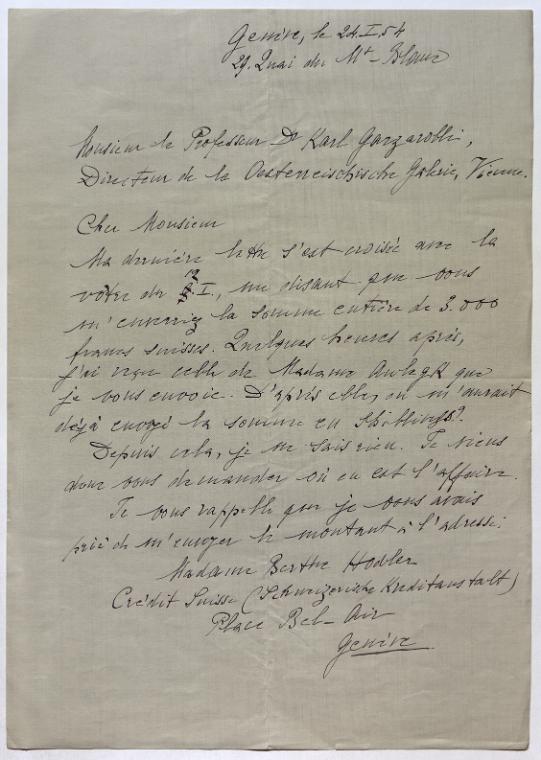 Genève, le 24.I.54
29. Quai du Mt-Blanc
Monsieur le Professeur Dr Karl Garzarolli,
Directeur de la Oesterreischische Galerie, Vienne.
Cher Monsieur
Ma dernière lettre s'est croisée avec la
vôtre du I., me disant que vous
m'enverriez la somme entière de 3.000
francs suisses. Quelques heures après,
j'ai reçu celle de Madame que
je vous envoie. D'après elle, on m'aurait
déjà envoyé la somme en Shillings?.
Depuis cela, je ne sais rien. Je viens
donc vous demander où en est l'affaire.
Je vous rappelle que je vous avais
prié de m'envoyer le montant à l'adresse:
Madame Berthe Hodler
Crédit Suisse (Schweizerische Kreditanstalt)
Place Bel-Air
Genève.